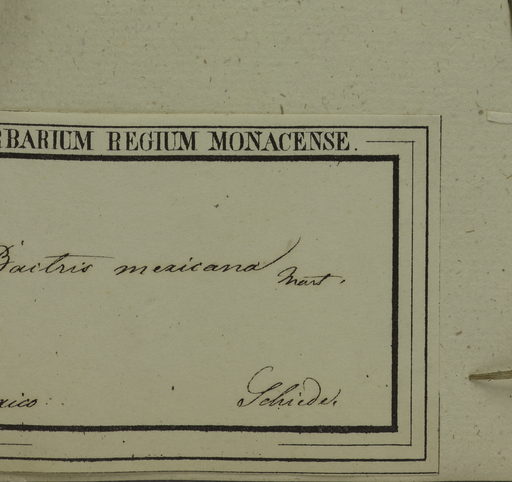 RBARIUM REGIUM MONACENSE.
Bactris mexicana Mart.
xico. Schiede.